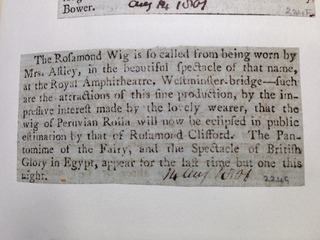 Bower.
Aug 14 1801
The Rosamond Wig is so called from being worn by
Mrs. Astley, in the beautiful spectacle of that name,
at the Royal Amphitheatre, Westminster-bridge—such
are the attractions of this fine production, by the im-
pressive interest made by the lovely wearer, that the
wig of Peruvian Rolla will now be eclipsed in public
estimation by that of Rosamond Clifford. The Pan-
tomime of the Fairy, and the Spectacle of British
Glory in Egypt, appear for the last time but one this
night.
14 Aug 1801
2249